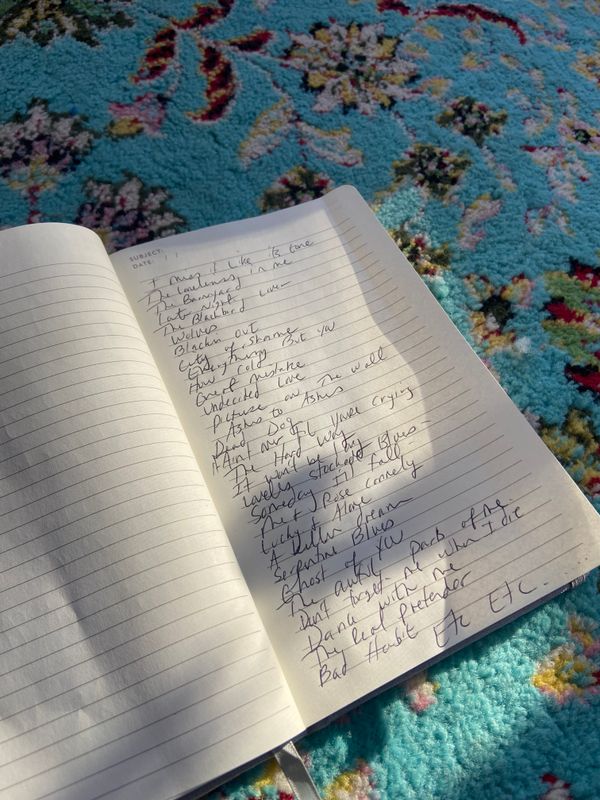 SUBJECT:
DATE:
I Like it's
The Loneliness in me
The Barnyard
Late Night
The Blackbird Live
Wolves
Blackin out
City of Shame
Everything But you
How Cold
Great Mistake
Undecided Love
Picture on The Wall
Ashes to Ashes
Dead Dog
it Aint over til Youre Crying
The Hard Way
It won't be long
Loveless Blues
Someday I'll fall
The Rose Connelly
Lucky & Alone
A dream
Serpentine Blues
Ghost of you
The parts of me
Don't forget me when I die
Dance with me
The Real Pretender
Bad Habit Etc Etc